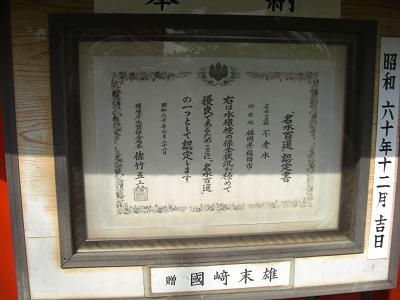 奉
納
名水百選 認定書
名水の名称 不老水
所在地 福岡県福岡市
右は水環境の保全状況が極めて
優良であるためここに、名水百選
の一つとして認定します
昭和六十年七月二十二日
環境庁水質保全局長 佐竹五六
昭和 六十年十二月 吉日
贈 國﨑末雄